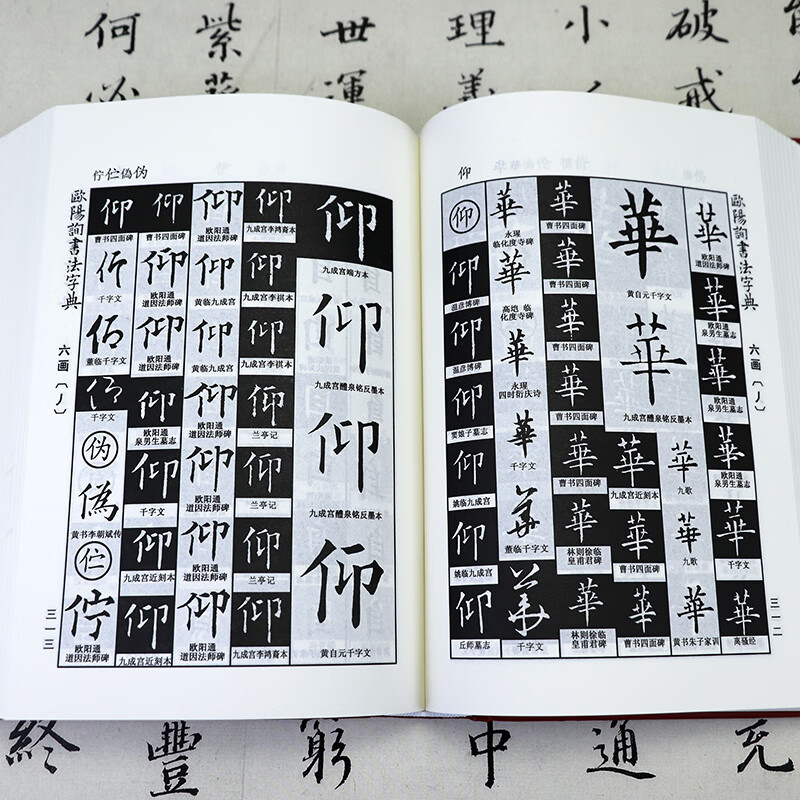 何 紫 世 理 小 破
戒
仰
歐陽詢書法字典
六画〔丿〕
三一二
華
欧阳通
道因法师碑
華
欧阳通
泉男生墓志
華
欧阳通
泉男生墓志
華
欧阳通
泉男生墓志
華
千字文
華
离骚经
華
黄自元千字文
華
九成宫醴泉铭反墨本
華
九歌
華
九歌
華
黄书朱子家训
華
九成宫近刻本
華
曹书四面碑
華
曹书四面碑
華
曹书四面碑
華
曹书四面碑
華
曹书四面碑
華
曹书四面碑
華
曹书四面碑
華
林则徐临
皇甫君碑
華
林则徐临
皇甫君碑
華
永瑆
临化度寺碑
華
高垲 临
化度寺碑
華
永瑆
四时衍庆诗
華
千字文
華
董临千字文
華
千字文
仰
仰
温彦博碑
仰
温彦博碑
仰
窦娘子墓志
仰
姚临九成宫
仰
姚临九成宫
仰
丘师墓志
佇伫偽伪
仰
九成宫端方本
仰
九成宫醴泉铭反墨本
仰
九成宫醴泉铭反墨本
仰
黄自元千字文
仰
九成宫李鸿裔本
仰
九成宫李祺本
仰
九成宫李祺本
仰
兰亭记
仰
兰亭记
仰
兰亭记
仰
九成宫李鸿裔本
仰
欧阳通
道因法师碑
仰
黄临九成宫
仰
黄临九成宫
仰
欧阳通
道因法师碑
仰
欧阳通
道因法师碑
仰
欧阳通
道因法师碑
仰
欧阳通
道因法师碑
仰
曹书四面碑
仰
欧阳通
道因法师碑
仰
欧阳通
道因法师碑
仰
欧阳通
道因法师碑
仰
千字文
仰
九成宫近刻本
仰
九成宫近刻本
仰
曹书四面碑
仰
千字文
仰
董临千字文
仰
千字文
伪
偽
黄书李朝斌传
伫
佇
欧阳通
道因法师碑
歐陽詢書法字典
六画〔丿〕
三一三
終 豐 窮 中 通 充